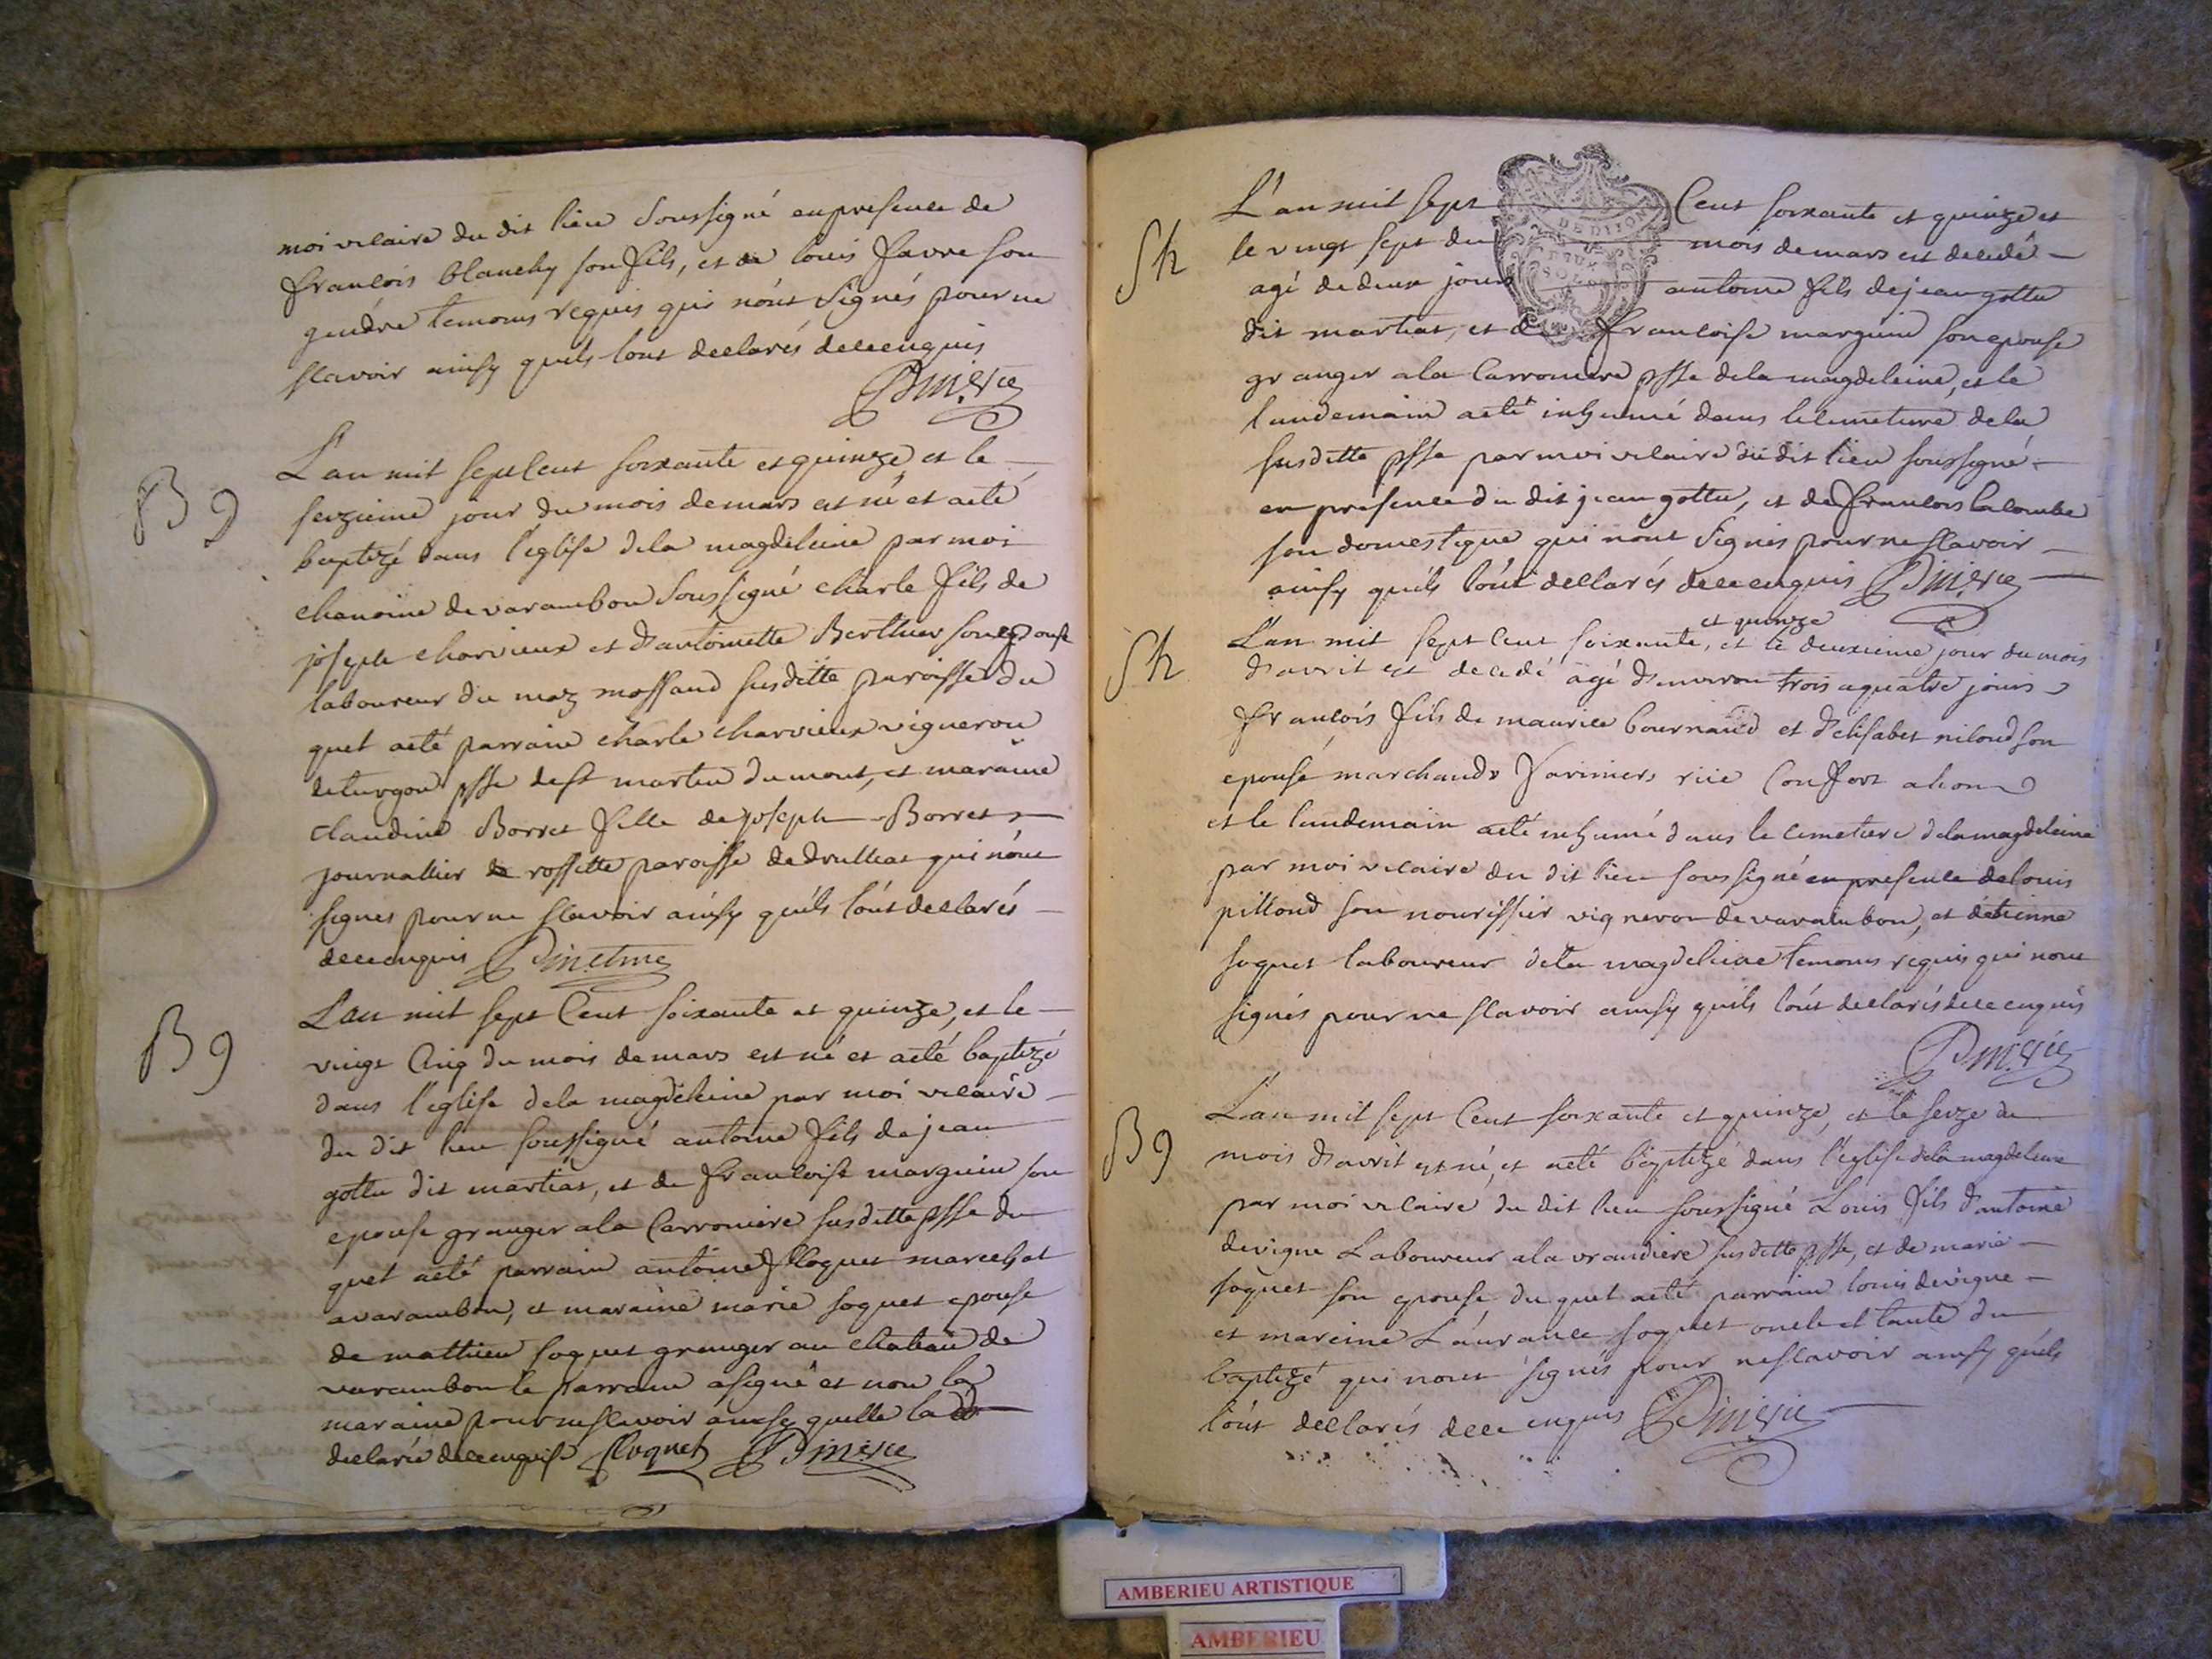 moi vicaire du dit lieu soussigné en presence de
francois blanchy son fils, et de louis favre son
gendre temoins requis qui nónt signés pour ne
scavoir ainsy quils lont declarés de ce enquis
B 9
L'an mil sept cent soixante et quinze et le
seizieme jour du mois de mars est né et a eté
baptizé dans l'eglise de la magdeleine par moi
chanoine de varambon soussigné charle fils de
joseph charvieux et d'antoinette Berthier son epouse
laboureur du maz mossaud susditte paroisse du
quel a eté parrain charle charvieux vigneron
de turgon psse de st martin du mont, et maraine
claudine Borret fille de joseph Borret
journallier de rossette paroisse de druillat qui nónt
signés pour ne scavoir ainsy quils lónt declarés
de ce enquis
B 9
L'an mil sept cent soixante et quinze, et le
vingt cinq du mois de mars est né et a eté baptizé
dans l'eglise de la magdeleine par moi vicaire
du dit lieu soussigné antoine fils de jean
gottu dit martiat, et de francoise marguin son
epouse granger a la carroniere susditte psse du
quel a eté parrain antoine floquet marechal
a varambon, et maraine marie foquet epouse
de mathieu foquet granger au chateau de
varambon le parrain a signé et non la
maraine pour ne scavoir ainsy quelle la
declaré de ce enquise floquet
L'an mil sept cent soixante et quinze et
Sh le vingt sept du mois de mars est decedé
agé de deux jours antoine fils de jean gottu
dit martiat, et de francoise marguin son epouse
granger a la carroniere psse de la magdeleine, et le
landemain a eté inhumé dans le cimetiere de la
susditte psse par moi vicaire du dit lieu soussigné
en presence du dit jean gottu, et de francois lacombe
son domestique qui nont signés pour ne scavoir
ainsy quils lónt declarés de ce enquis
et quinze
Sh L'an mil sept cent soixante, et le deuxieme jour du mois
d'avril est decedé agé d'environ trois a quatre jours
francois fils de maurice bournaud et d'elisabet niloud son
epouse marchands rüe confort a lion
et le landemain a eté inhumé dans le cimetiere de la magdeleine
par moi vicaire du dit lieu soussigné en presence de louis
pilloud son nourissier vigneron de varambon, et détienne
foquet laboureur de la magdeleine temoins requis qui nont
signés pour ne scavoir ainsy quils lónt declarés de ce enquis
L'an mil sept cent soixante et quinze, et le seize du
B 9 mois d'avril est né, et a eté baptizé dans l'église de la magdeleine
par moi vicaire du dit lieu soussigné Louis fils d'antoine
devigne Laboureur a la vrandiere susditte psse, et de marie
foquet son epouse du quel a eté parrain louis devigne
et mareine Laurance foquet oncle et tante du
baptizé qui nont signés pour ne scavoir ainsy quils
lónt declarés de ce enquis
AMBERIEU ARTISTIQUE
AMBERIEU